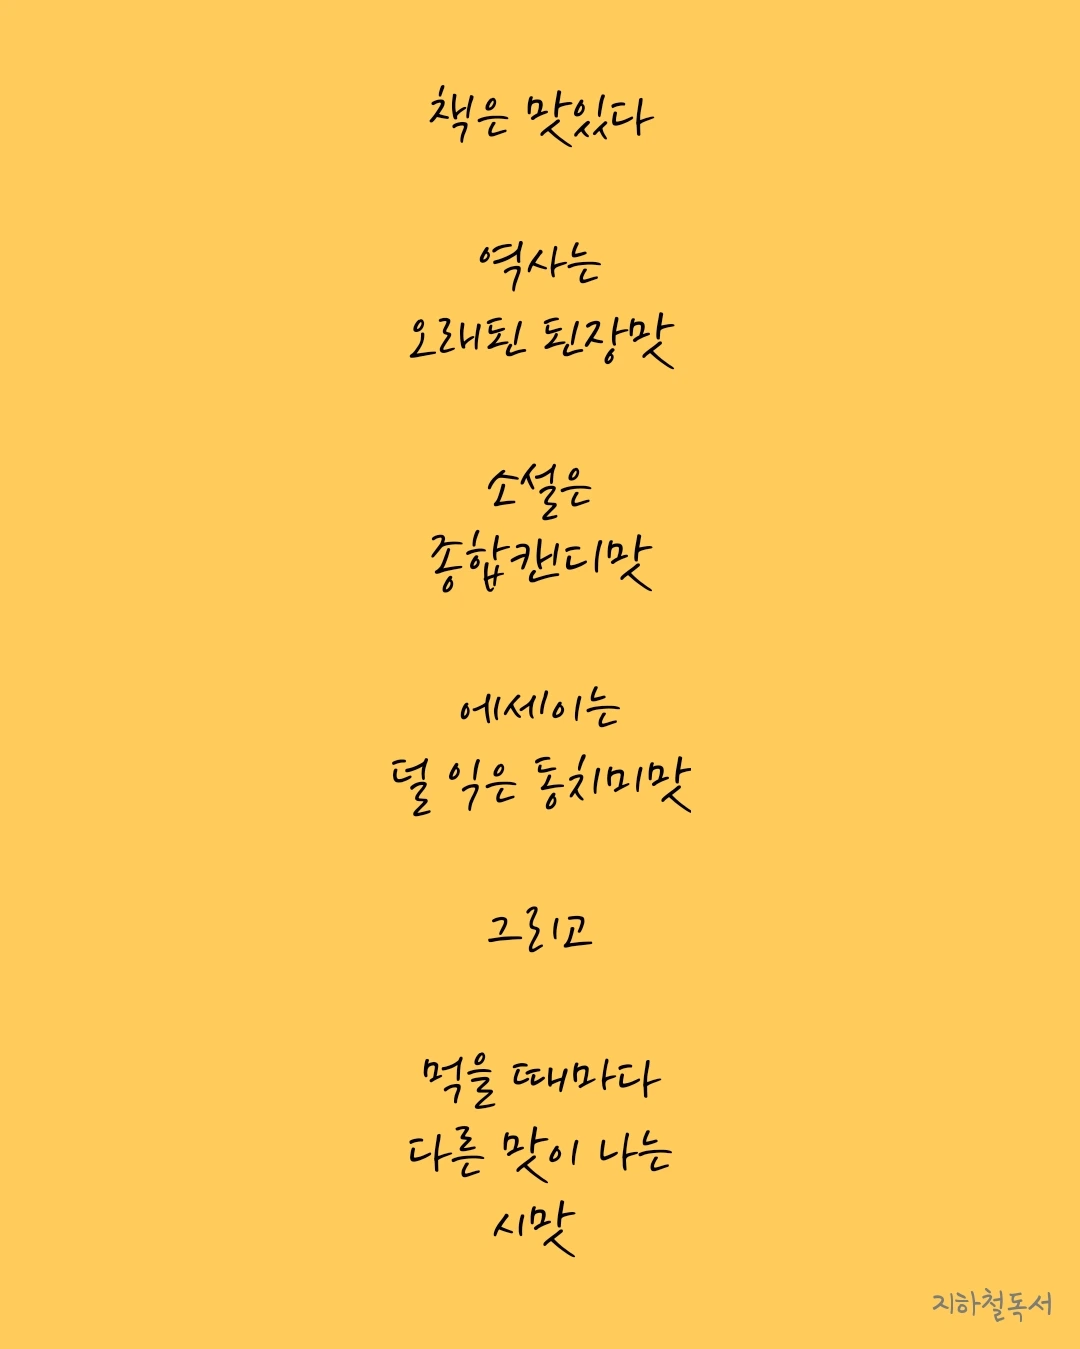 책은 맛있다
역사는
오래된 된장맛
소설은
종합캔디맛
에세이는
덜 익은 동치미맛
그리고
먹을 때마다
다른 맛이 나는
시맛
지하철독서